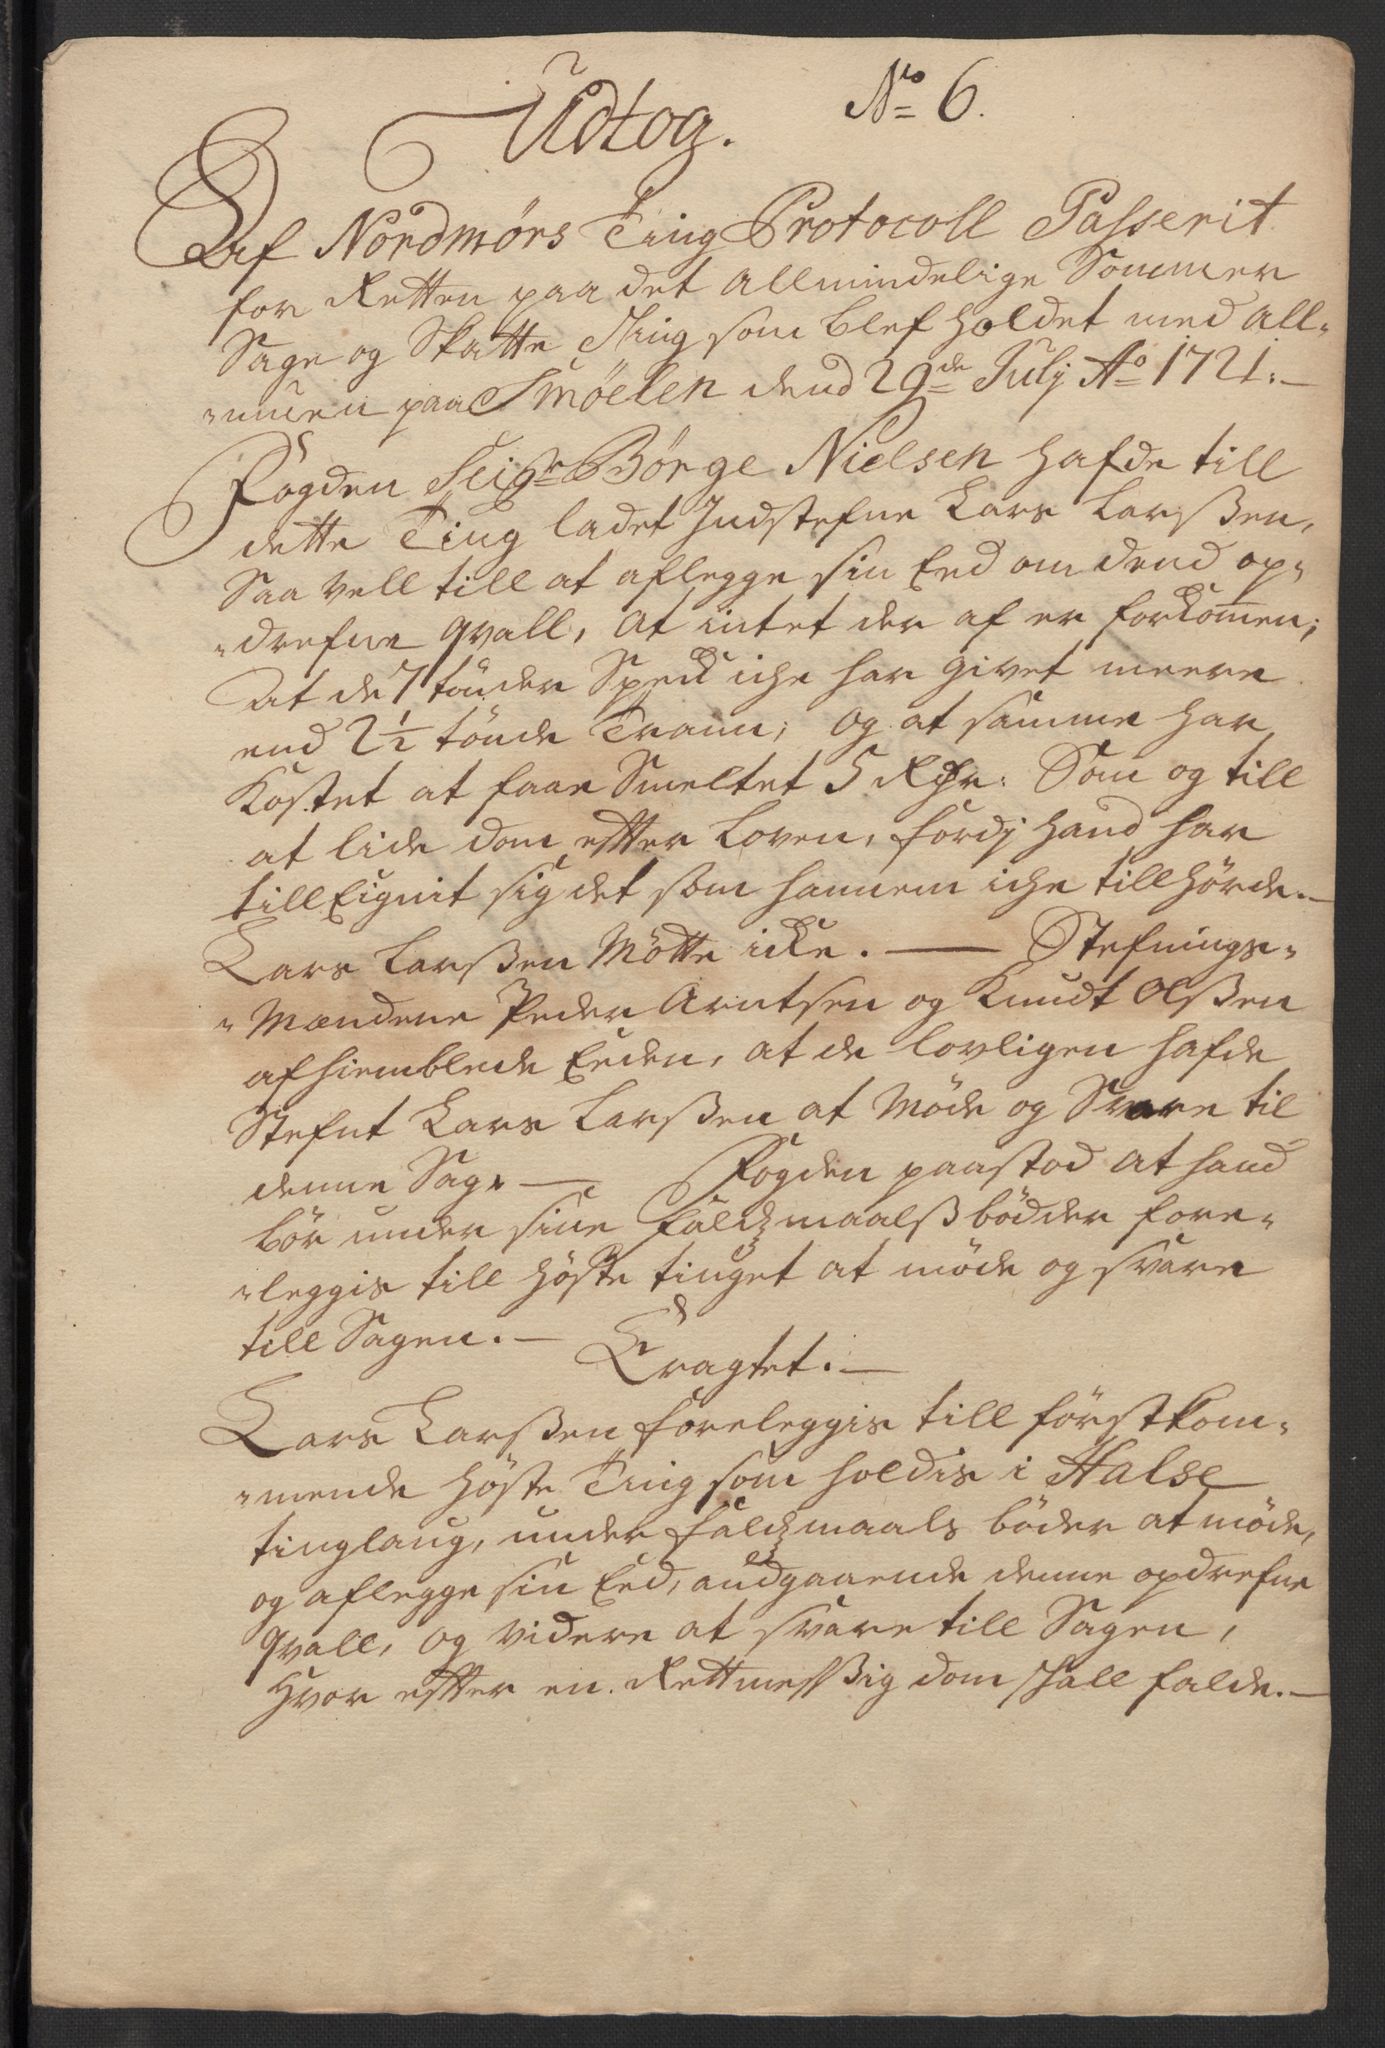 Udtog. No 6.
Af Nordmørs Ting Protocoll Passerit
for Retten paa det allmindelige Sommer
Sage og Skatte Thing som blef holdet med all-
-muen paa Smöelen dend 29de Julj Ao 1721.-
Fogden Seigr Börge Nielsen hafde till
dette Ting ladet Indstefne Lars Larßen,
Saa vell till at aflegge sin Eed om dend op-
-drefne qvall, at intet der af er forkommen;
at de 7 tönder Speck iche har givet meere
end 2½ tönde Traan; og at samme har
kostet at faae Smeltet 5 Rdr: Som og till
at lide dom effter Loven, fordj hand har
till Eignit sig det som hannem iche tillhörde.-
Lars Larßen Mötte icke. — Stefnings-
-Mændene Peder Arntsen og Knudt Olßen
afhiemblede Eeden, at de lovligen hafde
Stefnt Lars Larßen at Möde og Svare til
denne Sag. — Fogden paastod at hand
bör under sine Faldzmaalß bödder fore-
-leggis till Höste tinget at möde og svare
till Sagen. —
Eragtet. —
Lars Larßen foreleggis till förstkom-
-mende Höste Ting som holdis i Halse
tinglaug, under faldzmaals böder at möde,
og aflegge sin Eed, andgaaende denne opdrefne
qvall, og videre at svare till Sagen,
Hvor effter en Rettmessßig dom skall falde. —